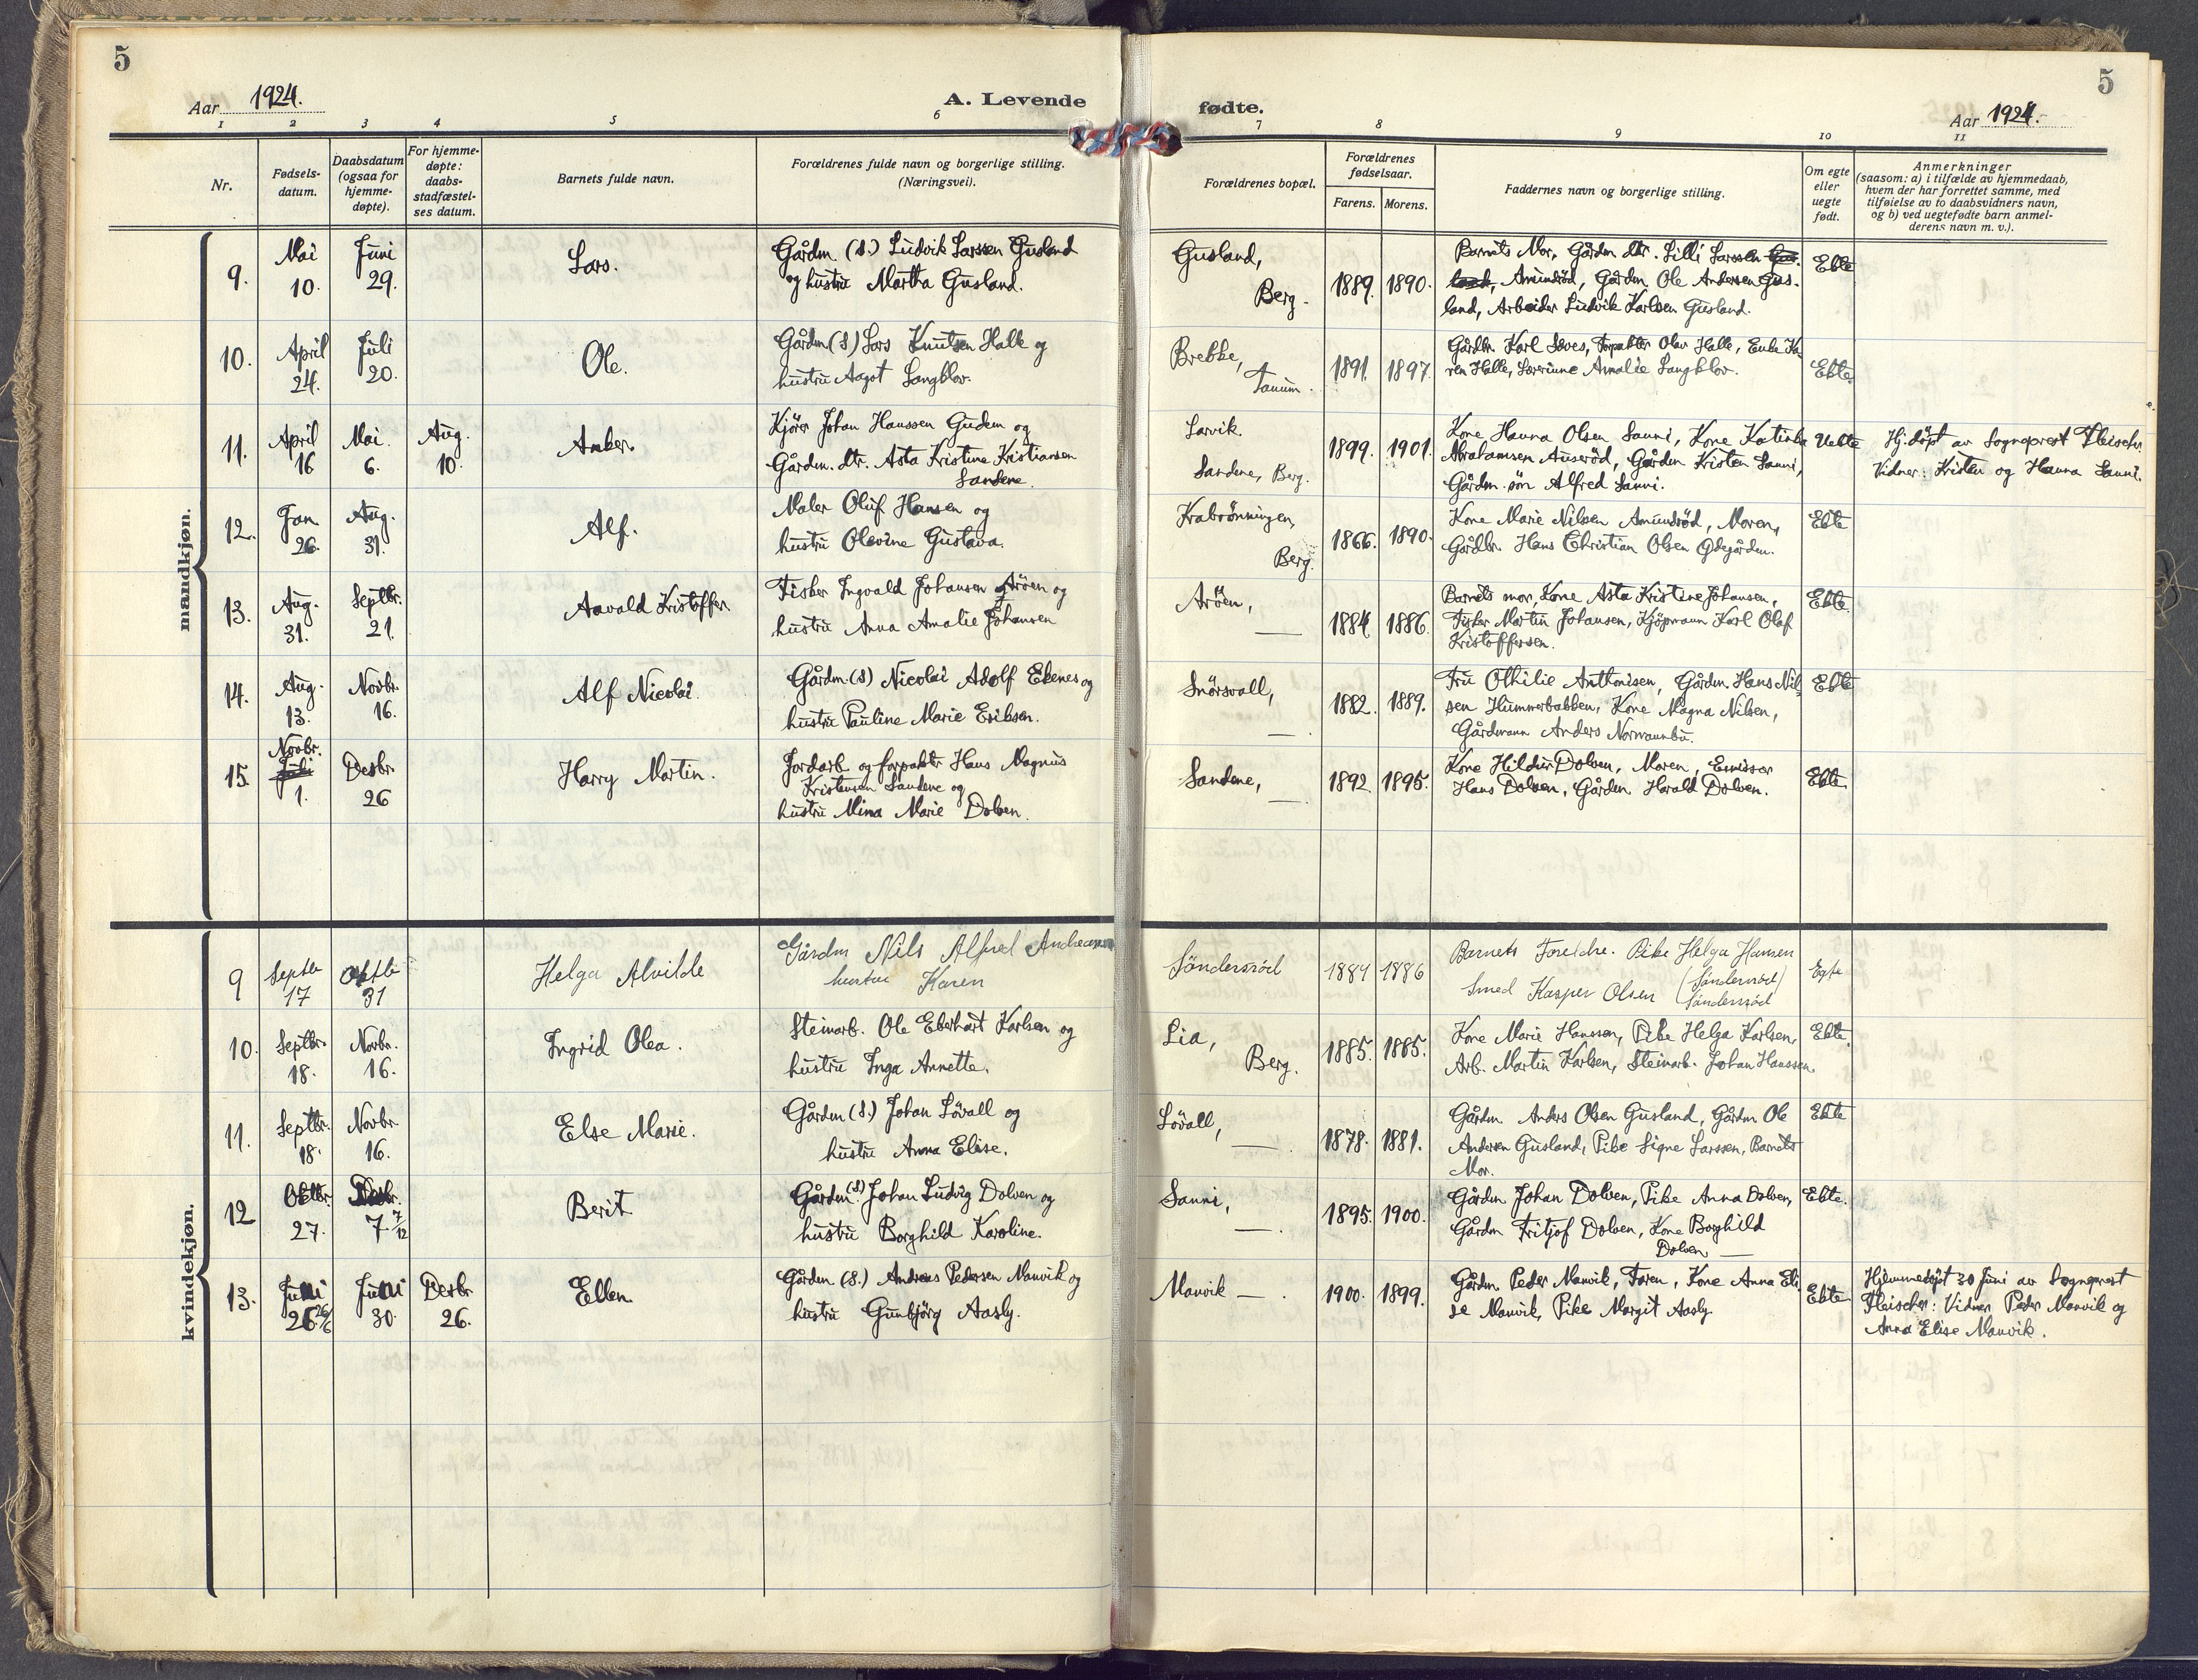 5
5
Aar 1924.
A. Levende
fødte.
Aar 1924.
1 2 3 4 5 6 7 8 9 10 11
Nr.
Fødsels-
datum.
Daabsdatum
(ogsaa for
hjemme-
døpte).
For hjemme-
døpte:
daabs-
stadfæstel-
ses datum.
Barnets fulde navn.
Forældrenes fulde navn og borgerlige stilling.
(Næringsvei).
Forældrenes bopæl.
Forældrenes
fødselsaar.
Farens. Morens.
Faddernes navn og borgerlige stilling.
Om egte
eller
uegte
født.
Anmerkninger
(saasom: a) i tilfælde av hjemmedaab,
hvem der har forrettet samme, med
tilføielse av to daabsvidners navn,
og b) ved uegtefødte barn anmel-
derens navn m. v.).
mandkjøn.
9.
Mai
10.
Juni
29.
Lars.
Gårdm. (S.) Ludvik Larssen Gusland
og hustru Martha Gusland.
Gusland,
Berg.
1889. 1890.
Barnets Mor, Gårdm. dtr. Lilli Larssen Gus-
land, Amundröd, Gårdm. Ole Andersen Gus-
land, Arbeider Ludvik Karlsen Gusland.
Ekte
10.
April
24.
Juli
20.
Ole.
Gårdm (S) Lars Knutsen Halle og
hustru Aagot Langblov.
Brekke,
Tanum.
1891. 1897.
Gårdbr. Karl Sves, Forpakter Olav Halle, Enke Ka-
ren Halle, Lærerinne Amalie Langblov.
Ekte.
11.
April
16
Mai.
6.
Aug.
10.
Anker.
Kjörer Johan Hanssen Gudem og
Gårdm. dtr. Asta Kristine Kristiansen
Sandene.
Larvik.
Sandene, Berg.
1899. 1901.
Kone Hanna Olsen Sanni, Kone Katinka
Abrahamsen Auseröd, Gårdm Kristen Sanni,
Gårdm. sön Alfred Sanni.
Uekte
Hj.döpt av Sogneprest Fleischer.
Vidner: Kristen og Hanna Sanni.
12.
Jan.
26.
Aug.
31.
Alf.
Maler Oluf Hansen og
hustru Olevine Gustava.
Krabrönningen,
Berg.
1866. 1890.
Kone Marie Nilsen Amundröd, Moren,
Gårdbr. Hans Christian Olsen Ødegården.
Ekte
13.
Aug.
31.
Septbr.
21.
Aavald Kristoffer.
Fisker Ingvald Johansen Aröen og
hustru Anna Amalie Johansen
Aröen,
—
1884. 1886.
Barnets mor, Kone Asta Kristine Johansen,
Fisker Martin Johansen, Kjöpmann Karl Olaf
Kristoffersen.
Ekte.
14.
Aug.
13.
Novbr.
16.
Alf Nicolai.
Gårdm. (S) Nicolai Adolf Ekenes og
hustru Pauline Marie Eriksen.
Snörsvall,
—
1882. 1889.
Fru Othilie Anthonisen, Gårdm. Hans Nil-
sen Hummerbakken, Kone Magna Nilsen,
Gårdmann Anders Normannbu.
Ekte
15.
Novbr.
Juli
1.
Desbr.
26
Harry Martin.
Jordarb. og forpakter Hans Magnus
Kristensen Sandene og
hustru Mina Marie Dolven.
Sandene,
—
1892. 1895.
Kone Hildur Dolven, Moren, Emissær
Hans Dolven, Gårdm. Harald Dolven.
Ekte.
kvindekjøn.
9
Septbr
17
Oktbr
31
Helga Alvilde
Gårdm Nils Alfred Andreassen
hustru Karen
Söndersröd
1884 1886
Barnets Foreldre. Pike Helga Hansen
(Söndersröd)
Smed Kasper Olsen (Söndersröd
Egte
10.
Septbr.
18.
Novbr.
16.
Ingrid Olea.
Steinarb. Ole Eberhart Karlsen og
hustru Inga Annette.
Lia,
Berg.
1885. 1885.
Kone Marie Hanssen, Pike Helga Karlsen,
Arb. Martin Karlsen, Steinarb. Johan Hanssen.
Ekte.
11.
Septbr.
18.
Novbr.
16.
Else Marie.
Gårdm (S.) Johan Lövall og
hustru Anna Elise.
Lövall,
—
1878. 1881.
Gårdm. Anders Olsen Gusland, Gårdm Ole
Andersen Gusland, Pike Signe Larssen, Barnets
Mor.
Ekte
12
Oktbr.
27.
Desbr.
7. 7/12
Berit
Gårdm. (S) Johan Ludvig Dolven og
hustru Borghild Karoline.
Sanni,
—
1895. 1900.
Gårdm Johan Dolven, Pike Anna Dolven,
Gårdm Fritjof Dolven, Kone Borghild
Dolven. —
Ekte.
13.
Juni
26. 26/6
Juni
30.
Desbr
26.
Ellen.
Gårdm (S.) Andreas Pedersen Manvik og
hustru Gunbjörg Aasly.
Manvik —
1900. 1899.
Gårdm. Peder Manvik, Faren, Kone Anna Eli-
se Manvik, Pike Margit Aasly.
Ekte
Hjemmedöpt 30 Juni av Sogneprest
Fleischer: Vidner Peder Manvik og
Anna Elise Manvik.